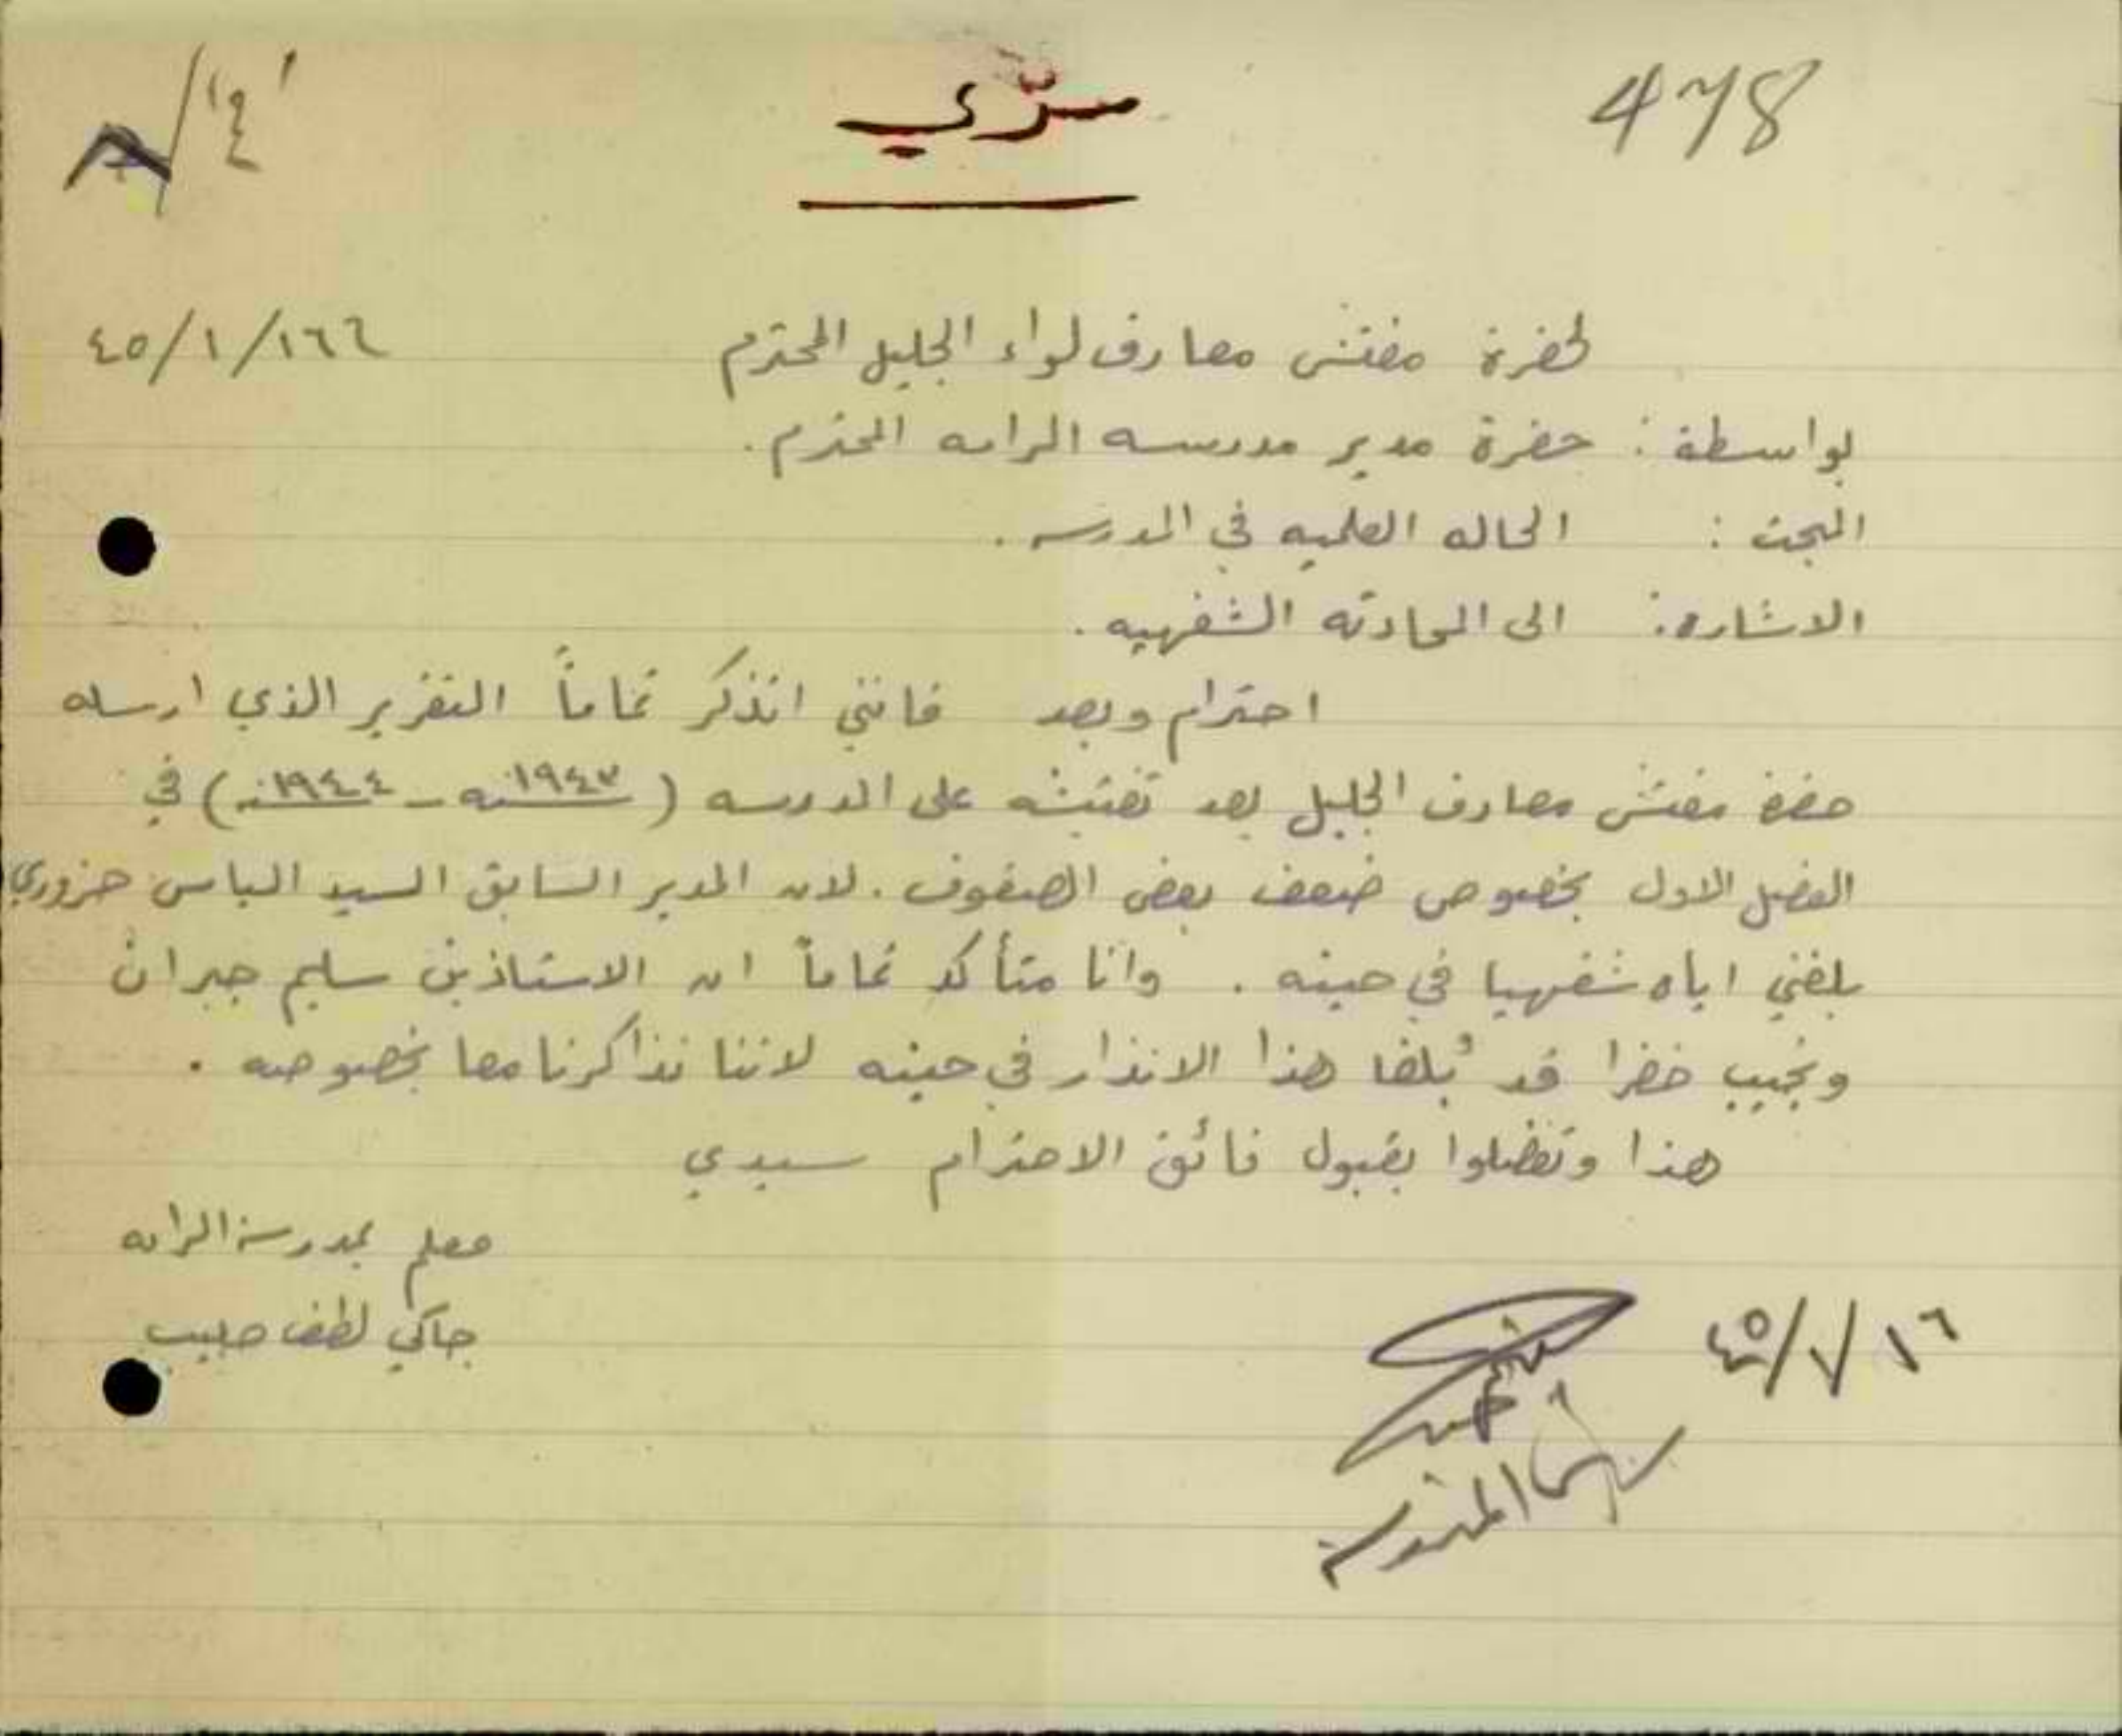 478
سرّي
لحضرة مفتش معارف لواء الجليل المحترم
٤٥/١/١٦
بواسطة : حضرة مدير مدرسه الرامه المحترم .
البحث : الحاله العلميه في المدرسه .
الاشاره : الى المحادثه الشفهيه .
احترام وبعد فانني اتذكر تماماً التقرير الذي ارسله
حضرة مفتش معارف الجليل بعد تفتيشه على المدرسه ( ١٩٤٣ - ١٩٤٤ ) في
الفصل الاول بخصوص ضعف بعض الصفوف . لان المدير السابق السيد الياس حزوري
بلغني اياه شفهيا في حينه . وانا متأكد تماماً ان الاستاذين سليم جبران
ونجيب خضرا قد بُلغا هذا الانذار في حينه لاننا تذاكرنا معا بخصوصه .
هذا وتفضلوا بقبول فائق الاحترام سيدي
معلم بمدرسة الرامه
جاكي لطف حبيب
٤٥/١/١٦
المدرسة